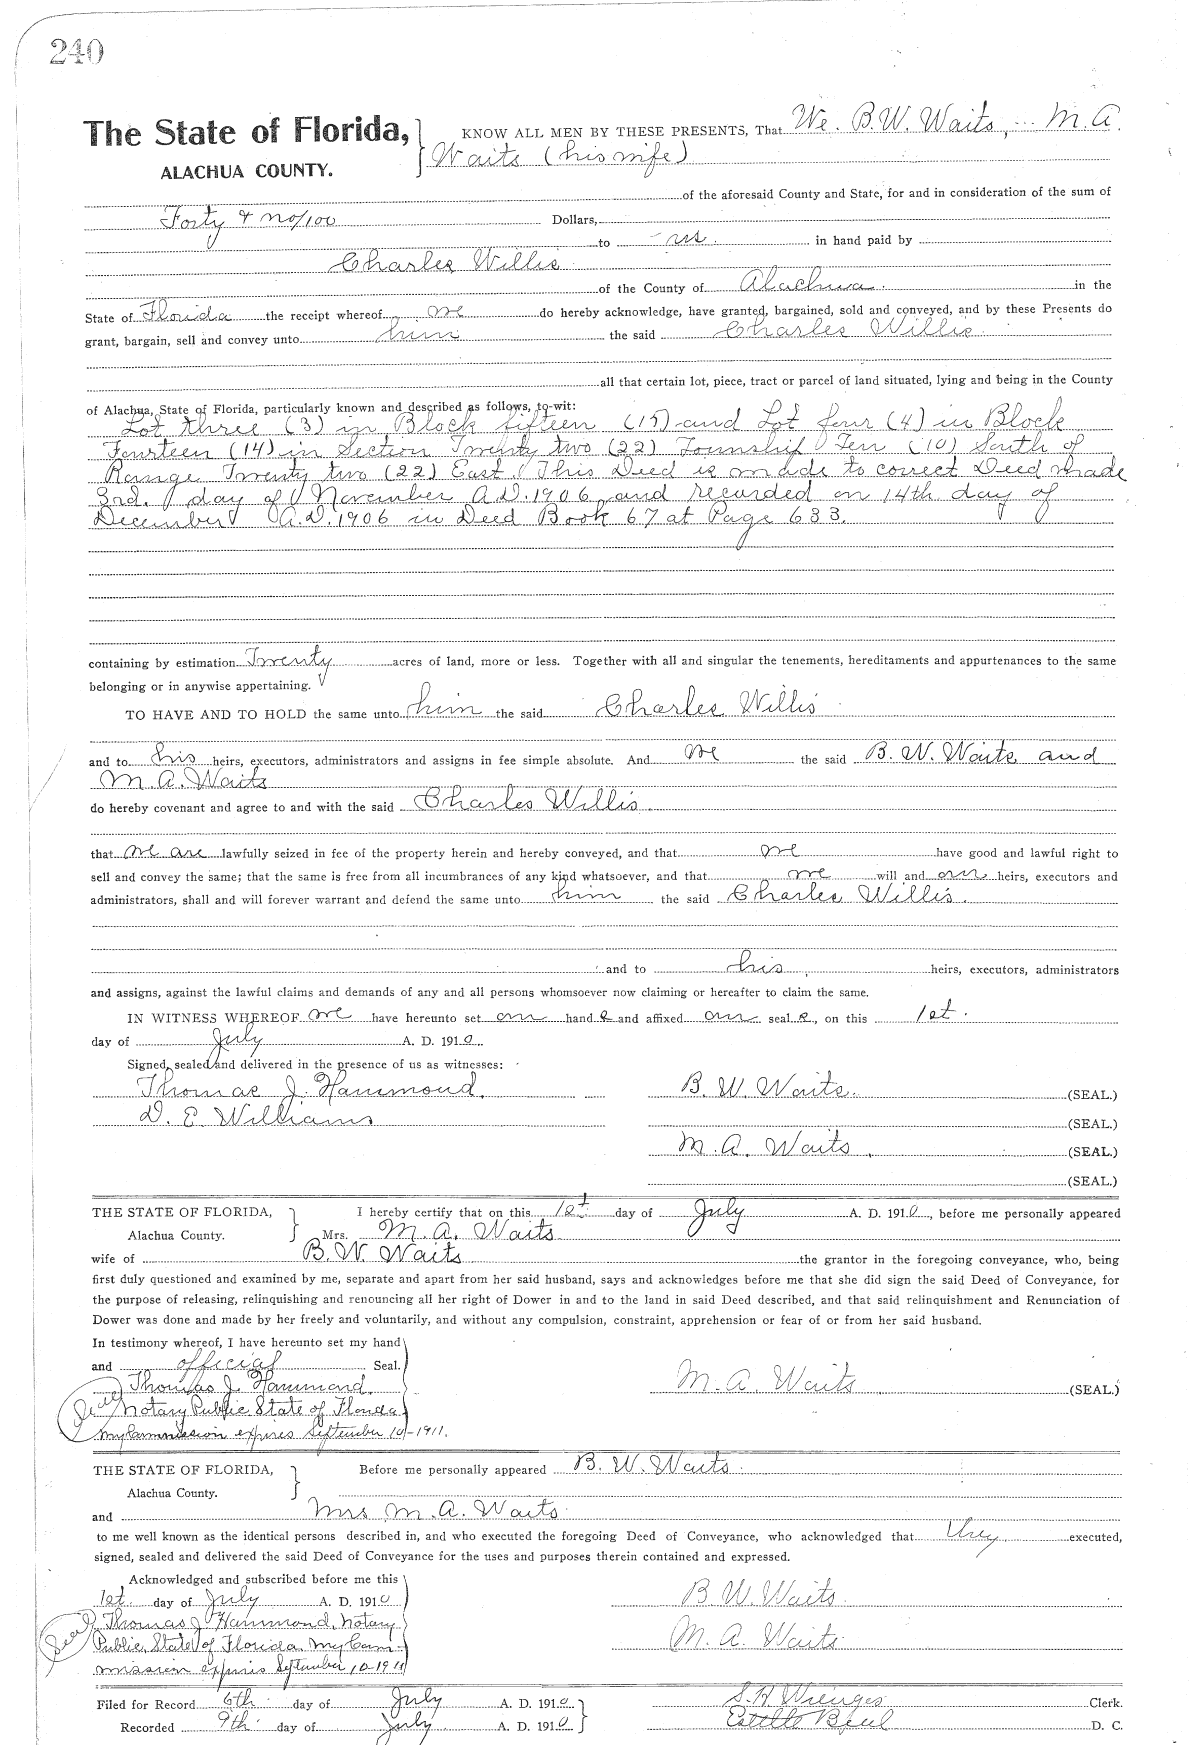 240
The State of Florida, KNOW ALL MEN BY THESE PRESENTS, That We. B.W. Waits, M.A.
ALACHUA COUNTY. Waits (his wife)
of the aforesaid County and State, for and in consideration of the sum of
Forty & no/100 Dollars,
to us in hand paid by
Charles Willis
of the County of Alachua in the
State of Florida the receipt whereof we do hereby acknowledge, have granted, bargained, sold and conveyed, and by these Presents do
grant, bargain, sell and convey unto him the said Charles Willis
all that certain lot, piece, tract or parcel of land situated, lying and being in the County
of Alachua, State of Florida, particularly known and described as follows, to-wit:
Lot three (3) in Block fifteen (15) and Lot four (4) in Block
Fourteen (14) in Section Twenty two (22) Township Ten (10) South of
Range Twenty two (22) East. This Deed is made to correct Deed made
3rd. day of November A.D. 1906 and recorded on 14th day of
December A.D. 1906 in Deed Book 67 at Page 633.
containing by estimation Twenty acres of land, more or less. Together with all and singular the tenements, hereditaments and appurtenances to the same
belonging or in anywise appertaining.
TO HAVE AND TO HOLD the same unto him the said Charles Willis
and to his heirs, executors, administrators and assigns in fee simple absolute. And we the said B. W. Waits and
M. A. Waits
do hereby covenant and agree to and with the said Charles Willis
that we are lawfully seized in fee of the property herein and hereby conveyed, and that we have good and lawful right to
sell and convey the same; that the same is free from all incumbrances of any kind whatsoever, and that we will and our heirs, executors and
administrators, shall and will forever warrant and defend the same unto him the said Charles Willis.
and to his heirs, executors, administrators
and assigns, against the lawful claims and demands of any and all persons whomsoever now claiming or hereafter to claim the same.
IN WITNESS WHEREOF we have hereunto set our hand s and affixed our seal s, on this 1st.
day of July A. D. 1910
Signed, sealed and delivered in the presence of us as witnesses:
Thomas J. Hammond. B. W. Waits. (SEAL.)
D. E. Williams (SEAL.)
M. A. Waits. (SEAL.)
(SEAL.)
THE STATE OF FLORIDA, I hereby certify that on this 1st day of July A. D. 1910, before me personally appeared
Alachua County. Mrs. M. A. Waits
wife of B. W. Waits the grantor in the foregoing conveyance, who, being
first duly questioned and examined by me, separate and apart from her said husband, says and acknowledges before me that she did sign the said Deed of Conveyance, for
the purpose of releasing, relinquishing and renouncing all her right of Dower in and to the land in said Deed described, and that said relinquishment and Renunciation of
Dower was done and made by her freely and voluntarily, and without any compulsion, constraint, apprehension or fear of or from her said husband.
In testimony whereof, I have hereunto set my hand
and official Seal.
Thomas J. Hammond. M. A. Waits (SEAL.)
Seal Notary Public State of Florida
my Commission expires September 10-1911.
THE STATE OF FLORIDA, Before me personally appeared B. W. Waits.
Alachua County.
and Mrs M. A. Waits
to me well known as the identical persons described in, and who executed the foregoing Deed of Conveyance, who acknowledged that they executed,
signed, sealed and delivered the said Deed of Conveyance for the uses and purposes therein contained and expressed.
Acknowledged and subscribed before me this
1st. day of July A. D. 1910 B W. Waits
Seal Thomas J Hammond, Notary
Public State of Florida. My Com- M. A. Waits
mission expires September 10-1911
Filed for Record 6th day of July A. D. 1910 S. H. Wienges Clerk.
Recorded 9th. day of July A. D. 1910 Estelle D. C.